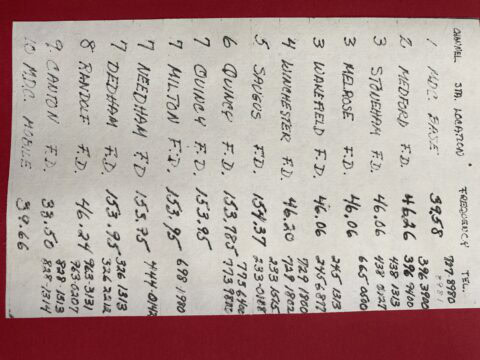 CHANNEL STA. LOCATION FREQUENCY TEL.
1 MDC BASE 39.58 727 8980
8981
2 MEDFORD F.D. 46.26 396 3900
396 9400
3 STONEHAM F.D. 46.06 438 1313
438 0127
3 MELROSE F.D. 46.06 665 0500
3 WAKEFIELD F.D. 46.06 245 1313
245 6877
4 WINCHESTER F.D. 46.20 729 1800
729 1802
5 SAUGUS F.D. 154.37 233 1525
233-0188
6 QUINCY F.D. 153.785 773 6400
773 9882
7 QUINCY F.D. 153.95
7 MILTON F.D. 153.95 698 1990
7 NEEDHAM F.D 153.75 444
7 DEDHAM F.D 153.95 326 1313
326
8 RANDOLF F.D. 46.24 963 3131
963 0207
9 CANTON F.D. 33.50 828 1313
828-1314
10 M.D.C. MOBILE 39.66